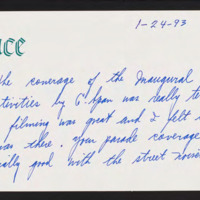 1-24-93
ace
he coverage of the Inaugural
tivities by C-Span was really te
filming was great and I felt
was there. Your parade coverage
ally good with the street noise